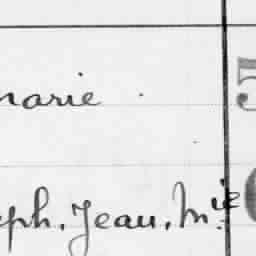 marie .
eph, Jean, Mie